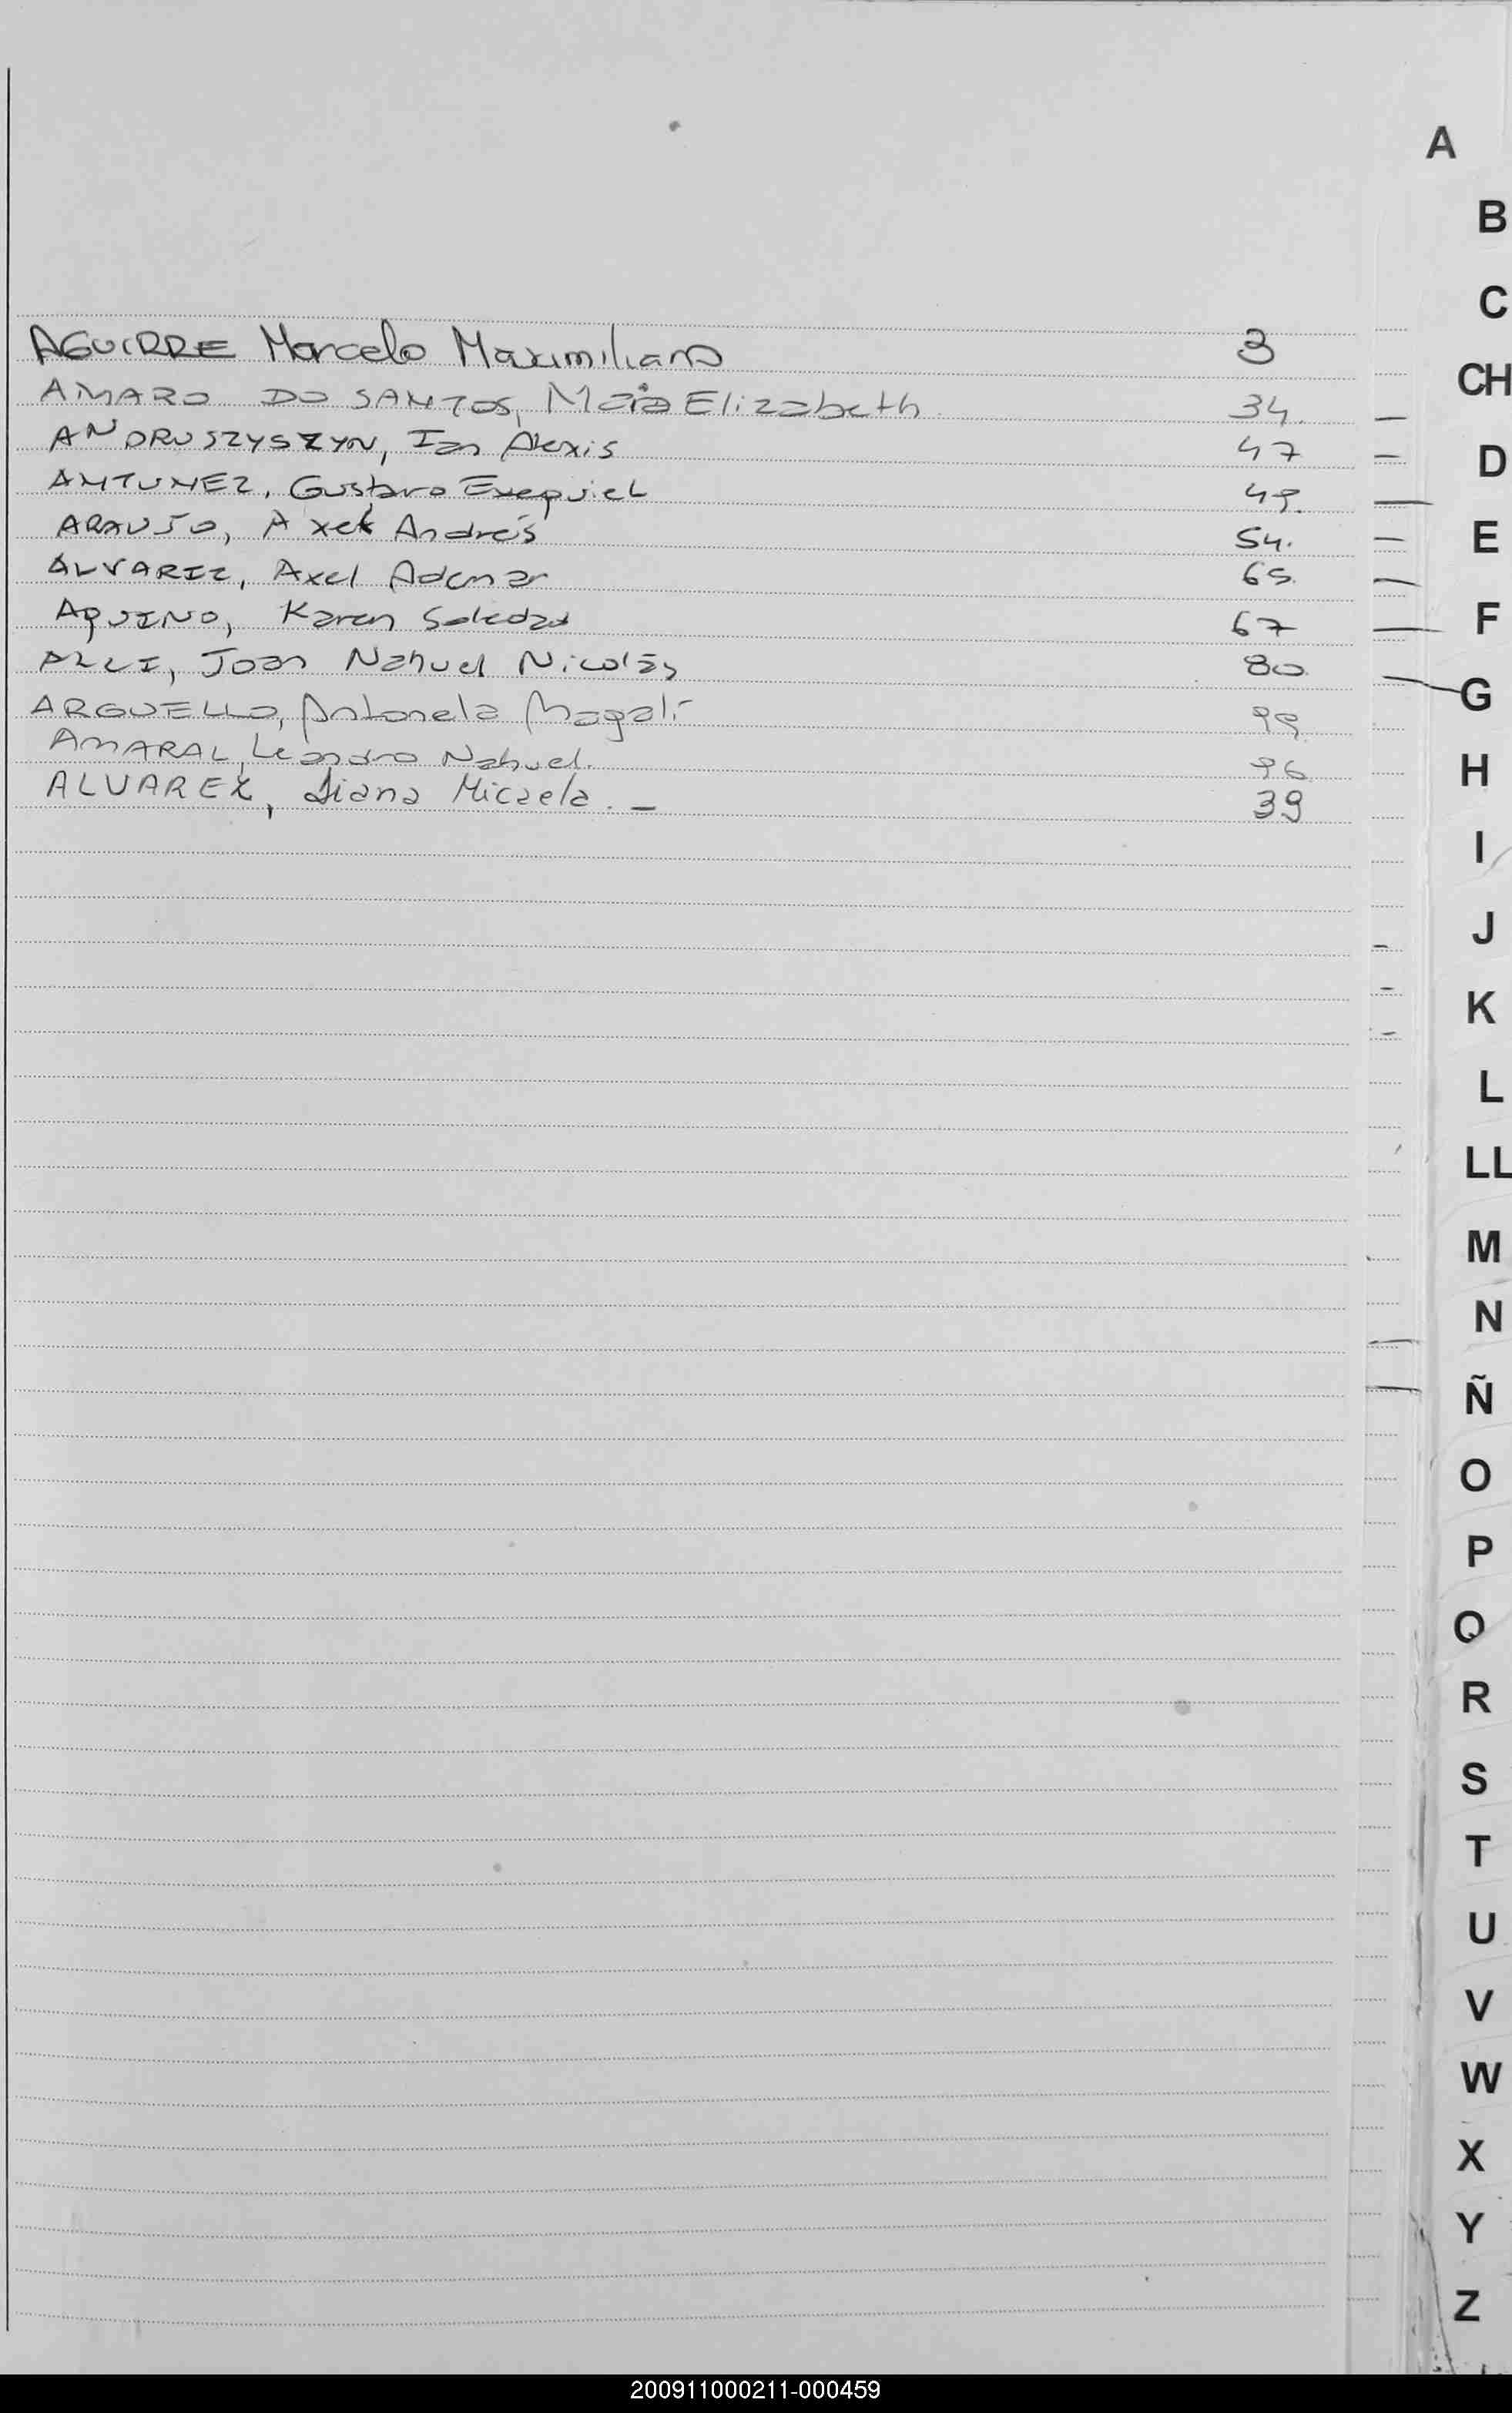 A
B
C
AGUIRRE Marcelo Maximiliano 3
CH
AMARO DO SANTOS, Maia Elizabeth 34.
ANDRUSZYSZYN, Ian Alexis 47
D
ANTUNEZ, Gustavo Exequiel 49.
ARAUJO, Axel Andrés 54.
E
ALVAREZ, Axel Ademar 65.
AQUINO, Karen Soledad 67
F
ALLI, Joan Nahuel Nicolás 80.
G
ARGUELLO, Antonela Magali 99
AMARAL, Leandro Nahuel. 96
H
ALVAREZ, Diana Micaela. – 39
I
J
K
L
LL
M
N
Ñ
O
P
Q
R
S
T
U
V
W
X
Y
Z
200911000211-000459